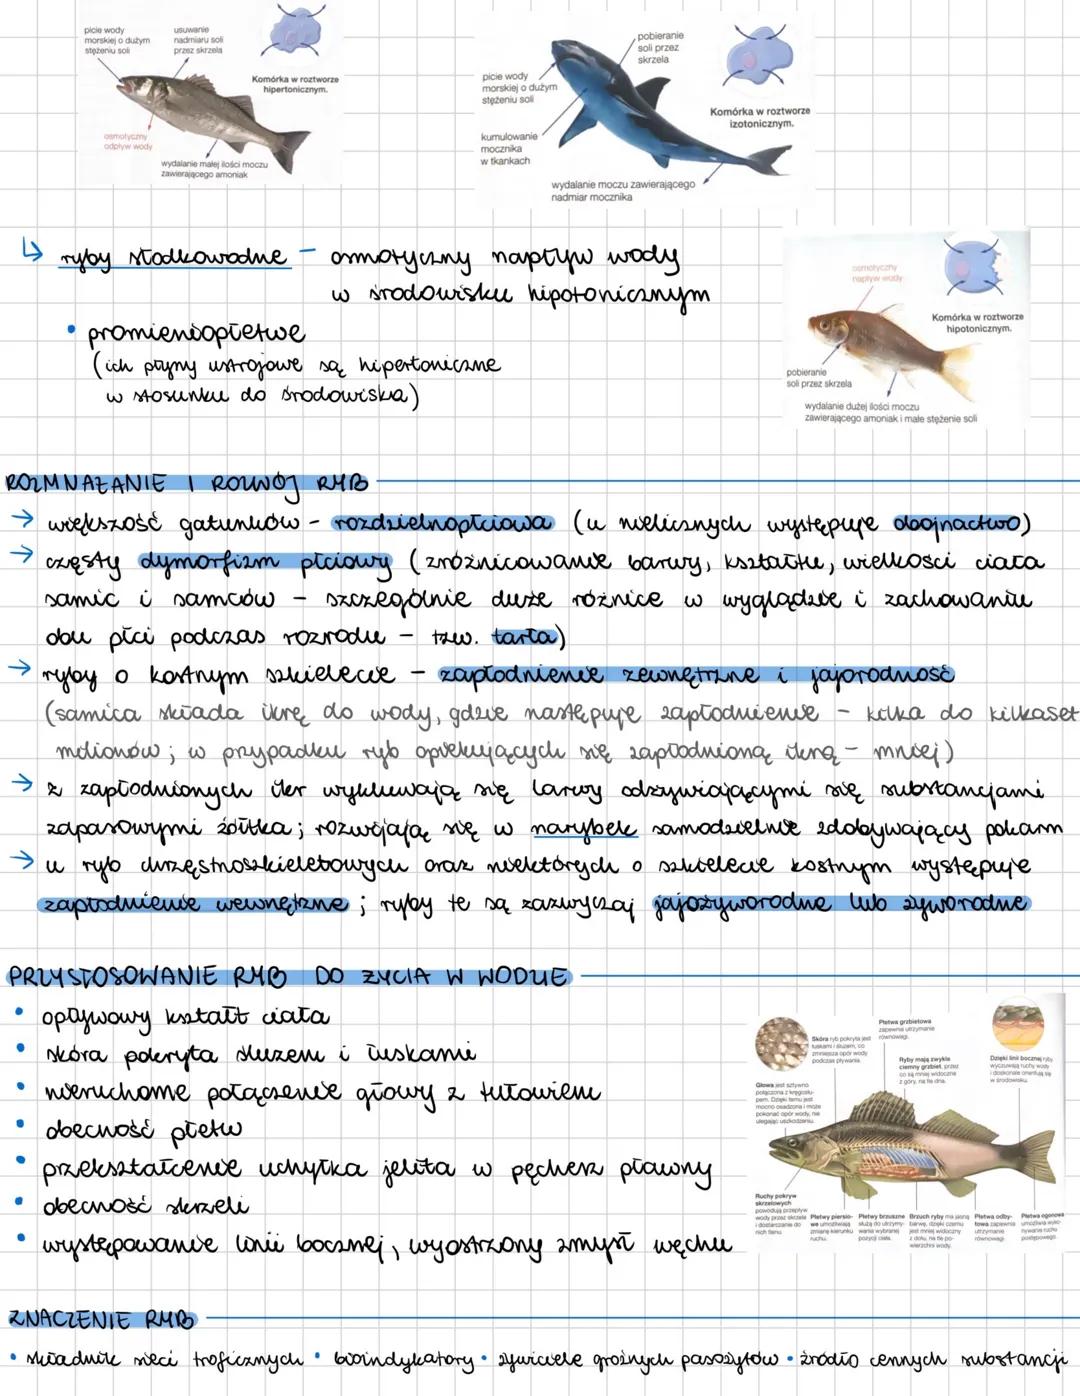 picie wody
morskiej o dużym
stężeniu soli
usuwanie
nadmiaru soli
przez skrzela
Komórka w roztworze
hipertonicznym.
osmotyczny
odpływ wody
wydalanie małej ilości moczu
zawierającego amoniak
pobieranie
soli przez
skrzela
picie wody
morskiej o dużym
stężeniu soli
Komórka w roztworze
izotonicznym.
kumulowanie
mocznika
w tkankach
wydalanie moczu zawierającego
nadmiar mocznika
↳ ryby słodkowodne – osmotyczny napływ wody
w środowisku hipotonicznym
• promieniopłetwe
(ich płyny ustrojowe są hipertoniczne
w stosunku do środowiska)
osmotyczny
napływ wody
Komórka w roztworze
hipotonicznym.
pobieranie
soli przez skrzela
wydalanie dużej ilości moczu
zawierającego amoniak i małe stężenie soli
ROZMNAŻANIE I ROZWÓJ RYB
→ większość gatunków - rozdzielnopłciowa (u nielicznych występuje obojnactwo)
→ częsty dymorfizm płciowy (zróżnicowanie barwy, kształtu, wielkości ciała
samic i samców – szczególnie duże różnice w wyglądzie i zachowaniu
obu płci podczas rozrodu – tzw. tarła)
→ ryby o kostnym szkielecie – zapłodnienie zewnętrzne i jajorodność
(samica składa ikrę do wody, gdzie następuje zapłodnienie – kilka do kilkaset
milionów; w przypadku ryb opiekujących się zapłodnioną ikrą – mniej)
→ z zapłodnionych iker wykluwają się larwy odżywiającymi się substancjami
zapasowymi żółtka; rozwijają się w narybek samodzielnie zdobywający pokarm
→ u ryb chrzęstnoszkieletowych oraz niektórych o szkielecie kostnym występuje
zapłodnienie wewnętrzne; ryby te są zazwyczaj jajożyworodne lub żyworodne
PRZYSTOSOWANIE RYB DO ŻYCIA W WODZIE
• opływowy kształt ciała
• skóra pokryta śluzem i łuskami
• nieruchome połączenie głowy z tułowiem
• obecność płetw
• przekształcenie uchyłka jelita w pęcherz pławny
• obecność skrzeli
• występowanie linii bocznej, wyostrzony zmysł węchu
Skóra ryb pokryta jest
łuskami i śluzem, co
zmniejsza opór wody
podczas pływania.
Płetwa grzbietowa
zapewnia utrzymanie
równowagi.
Ryby mają zwykle
ciemny grzbiet, przez
co są mniej widoczne
z góry, na tle dna.
Dzięki linii bocznej ryby
wyczuwają ruchy wody
i doskonale orientują się
w środowisku.
Głowa jest sztywno
połączona z kręgosłu-
pem. Dzięki temu jest
mocno osadzona i może
pokonać opór wody, nie
ulegając uszkodzeniu.
Ruchy pokryw
skrzelowych
powodują przepływ
wody przez skrzela
i dostarczanie do
nich tlenu.
Płetwy piersio-
we umożliwiają
zmianę kierunku
ruchu.
Płetwy brzuszne
służą do utrzymy-
wania wybranej
pozycji ciała.
Brzuch ryby ma jasną
barwę, dzięki czemu
jest mniej widoczny
z dołu, na tle po-
wierzchni wody.
Płetwa odby-
towa zapewnia
utrzymanie
równowagi.
Płetwa ogonowa
umożliwia wyko-
nywanie ruchu
postępowego.
ZNACZENIE RYB
• składnik sieci troficznych • bioindykatory • żywiciele groźnych pasożytów • źródło cennych substancji